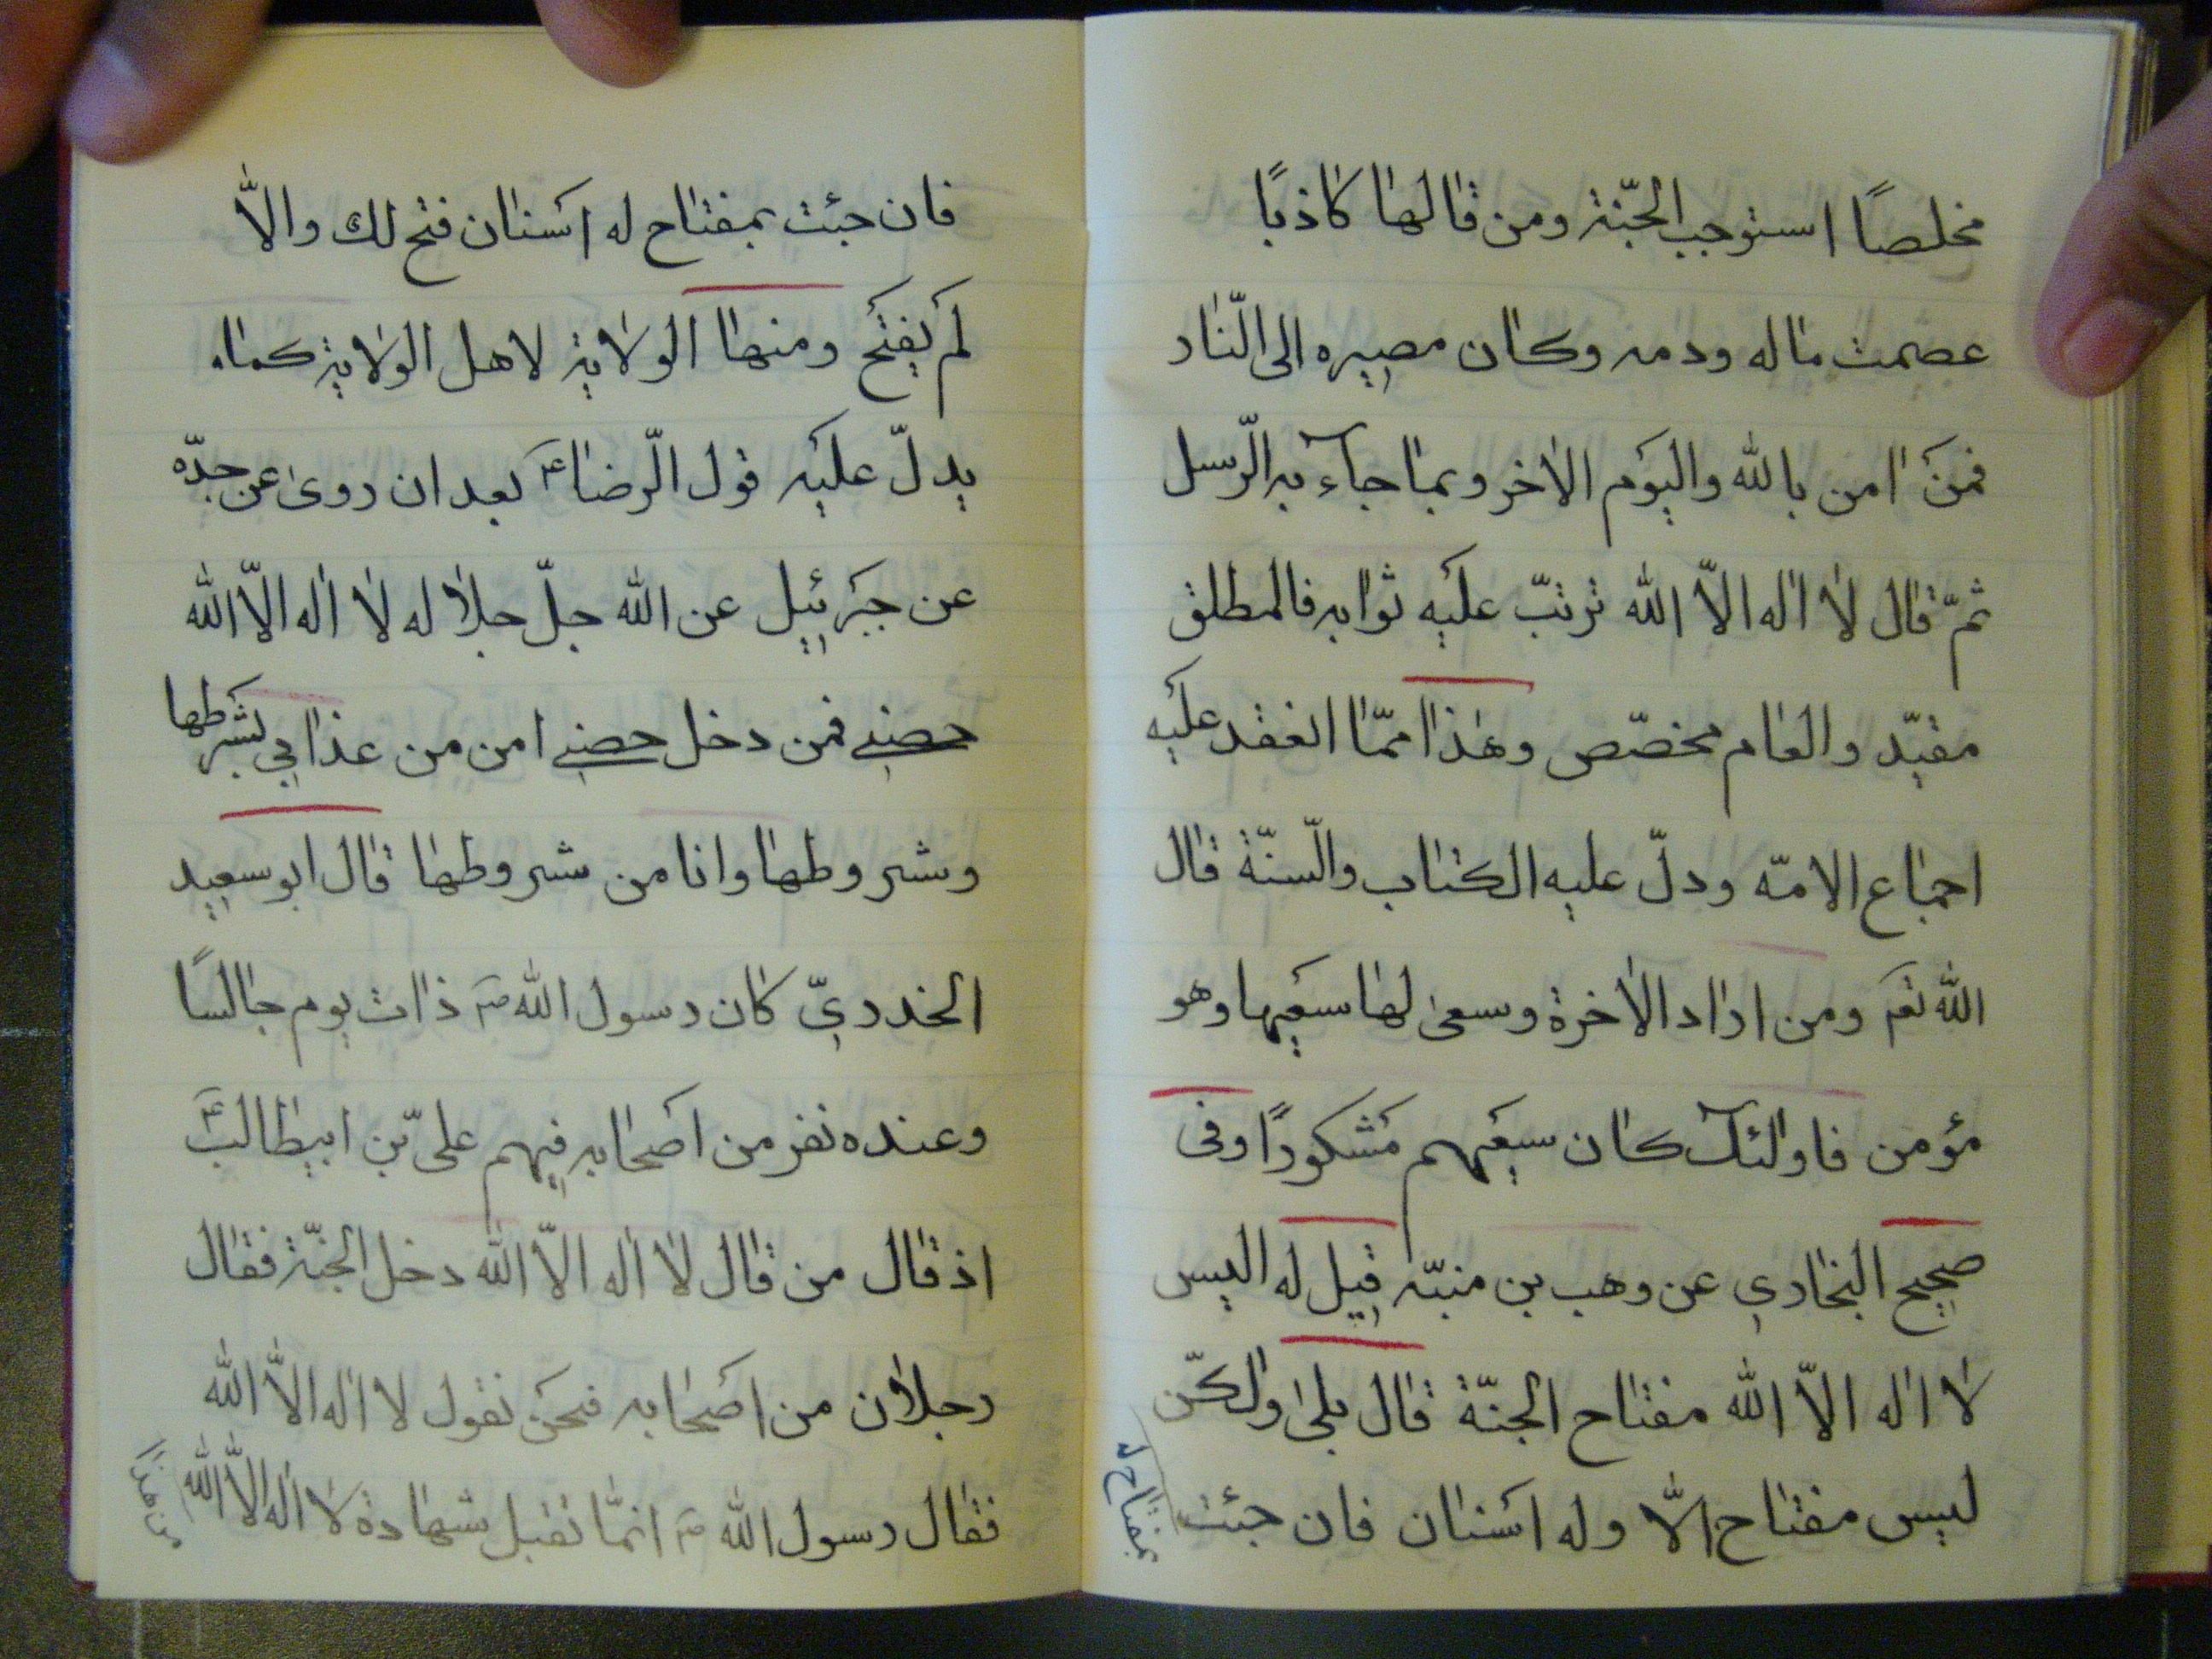 مخلصًا استوجب الجنّة ومن قالها كاذبًا
عصمت ماله ودمه وكان مصيره الى النّار
فمن امن بالله واليوم الاخر وبما جآء به الرّسل
ثمّ قال لا اله الاّ الله ترتبّ عليه ثوابه فالمطلق
مقيّد والعام مخصّص وهذا ممّا انعقد عليه
اجماع الامّه ودلّ عليه الكتاب والسّنّة قال
الله تعم ومن اراد الاخرة وسعى لها سعيها وهو
مؤمن فاولئك كان سعيهم مشكورًا وفى
صحيح البخاري عن وهب بن منبّه قيل له اليس
لا اله الاّ الله مفتاح الجنّة قال بلى ولكنّ
ليس مفتاح الاّ وله اسنان فان جئت
بمفتاح له
فان جئت بمفتاح له اسنان فتح لك والاّ
لم يفتح ومنها الولاية لاهل الولاية كماه
يدلّ عليه قول الرّضاء بعد ان روى عن جدّه
عن جبرئيل عن الله جلّ جلاله لا اله الاّ الله
حصني فمن دخل حصني امن من عذابي بشرطها
وشروطها وانا من شروطها قال ابو سعيد
الخدريّ كان رسول الله ص ذات يوم جالسًا
وعنده نفر من اصحابه فيهم على بن ابيطالب ع
اذ قال من قال لا اله الاّ الله دخل الجنّة فقال
رجلان من اصحابه فنحن نقول لا اله الاّ الله
فقال رسول الله ص انمّا تقبل شهادة لا اله الاّ الله
من هذا